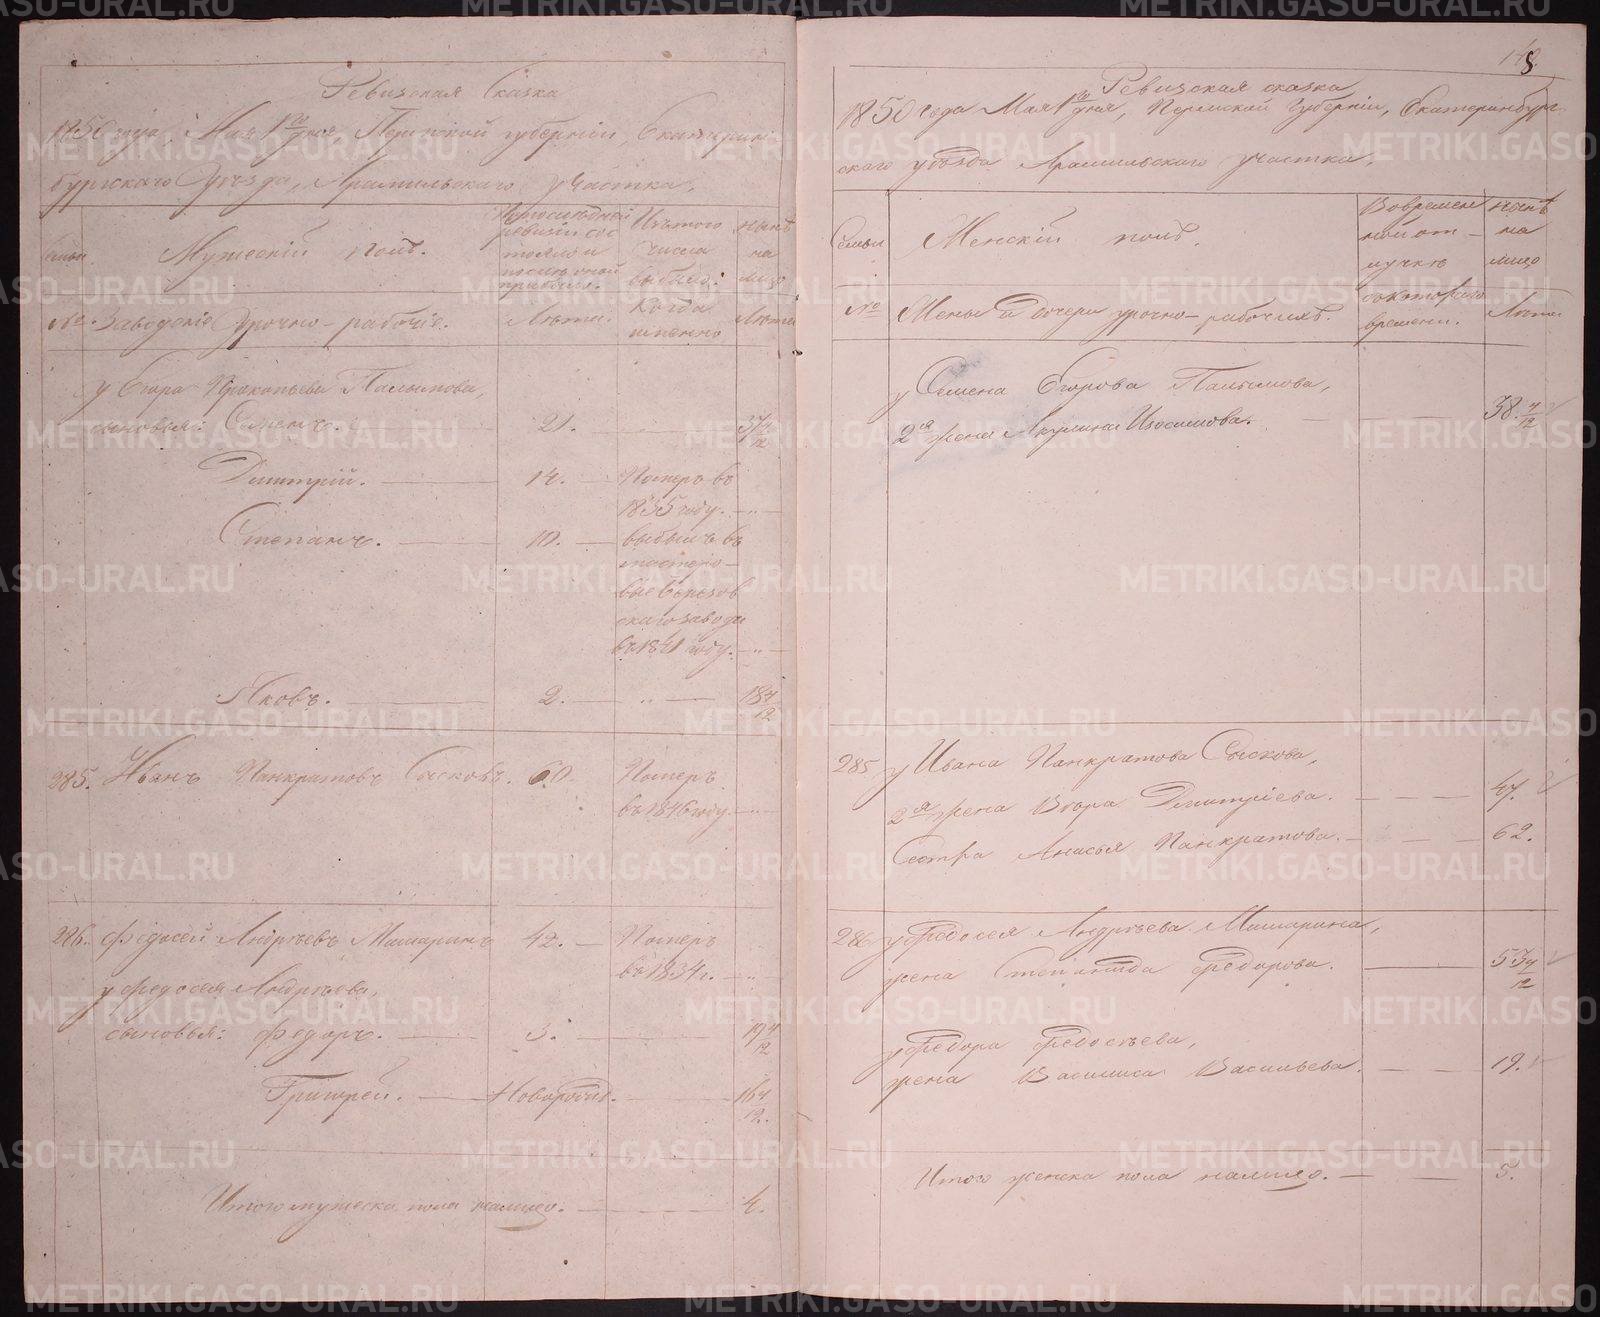 Ревизская Сказка
1850 года, Мая 1го дня, Пермской губерніи, Екатерин-
бургскаго Уѣзда, Арамильскаго участка,
Семьи.
Мужескій полъ.
По последней
ревизіи сос
тояло и
после оной
прибыло.
Изъ того
числа
выбыло:
нынѣ
на
лицо
№.
Заводскіе Урочно-рабочіе.
Лѣта.
Когда
именно
Лѣта
у Егора Прокопьева Палымова,
сыновья: Семенъ. 21. 37 4/12
Дмитрій. 14. Померъ въ
1835 году.
Степанъ. 10. выбылъ въ
мастеро-
вые Березов
скаго завода
въ 1841 году.
Яковъ. 2. 18 4/12
285. Иванъ Панкратовъ Сысковъ. 60. Померъ
въ 1846 году.
286. Федосей Андреевъ Машаринъ 42. Померъ
въ 1834 г.
у Федосея Андреева,
сыновья: Федоръ. 3. 19 4/12
Григорей. Новорожд. 16 4/12.
Итого мужеска пола налицо. 4.
118
Ревизская сказка
1850 года Мая 1го дня, Пермской Губерніи, Екатеринбург-
скаго уѣзда Арамильскаго участка,
Семьи
Женскій полъ.
Во времен
ной от-
лучкѣ
нынѣ
на
лицо
№
Жены и дочери урочно-рабочихъ.
съ котораго
времени.
Лѣта
у Семена Егорова Палымова,
2я жена Акулина Изосимова. 38. 4/12
285 у Ивана Панкратова Сыскова,
2я жена Вѣра Дмитріева. 47.
Сестра Анисья Панкратова. 62.
286 у Федосея Андреева Машарина,
жена Степанида Федорова. 53 4/12
у Федора Федосѣева,
жена Василиса Васильева. 19.
Итого женска пола налицо. 5.
METRIKI.GASO-URAL.RU